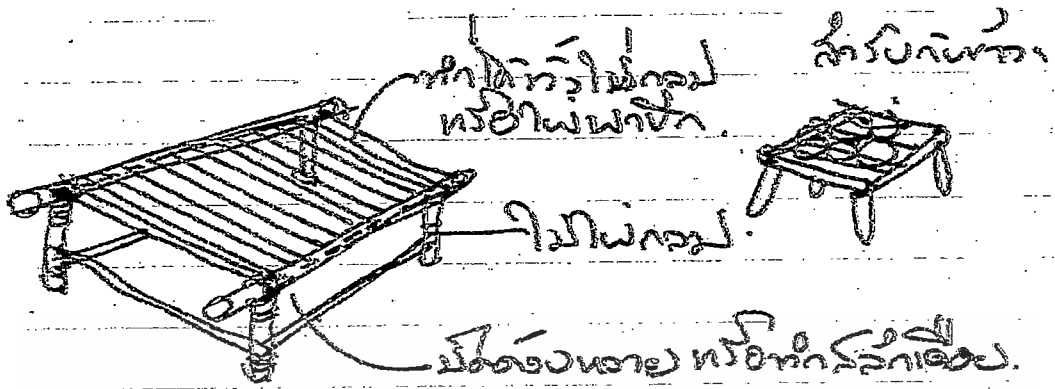 ทำได้ทั้งไม้กลม
หรือไผ่ผ่าซีก.
สำรับกับข้าว
ไม้ไผ่กลม.
มัดด้วยหวาย หรือทำสลักเดือย.